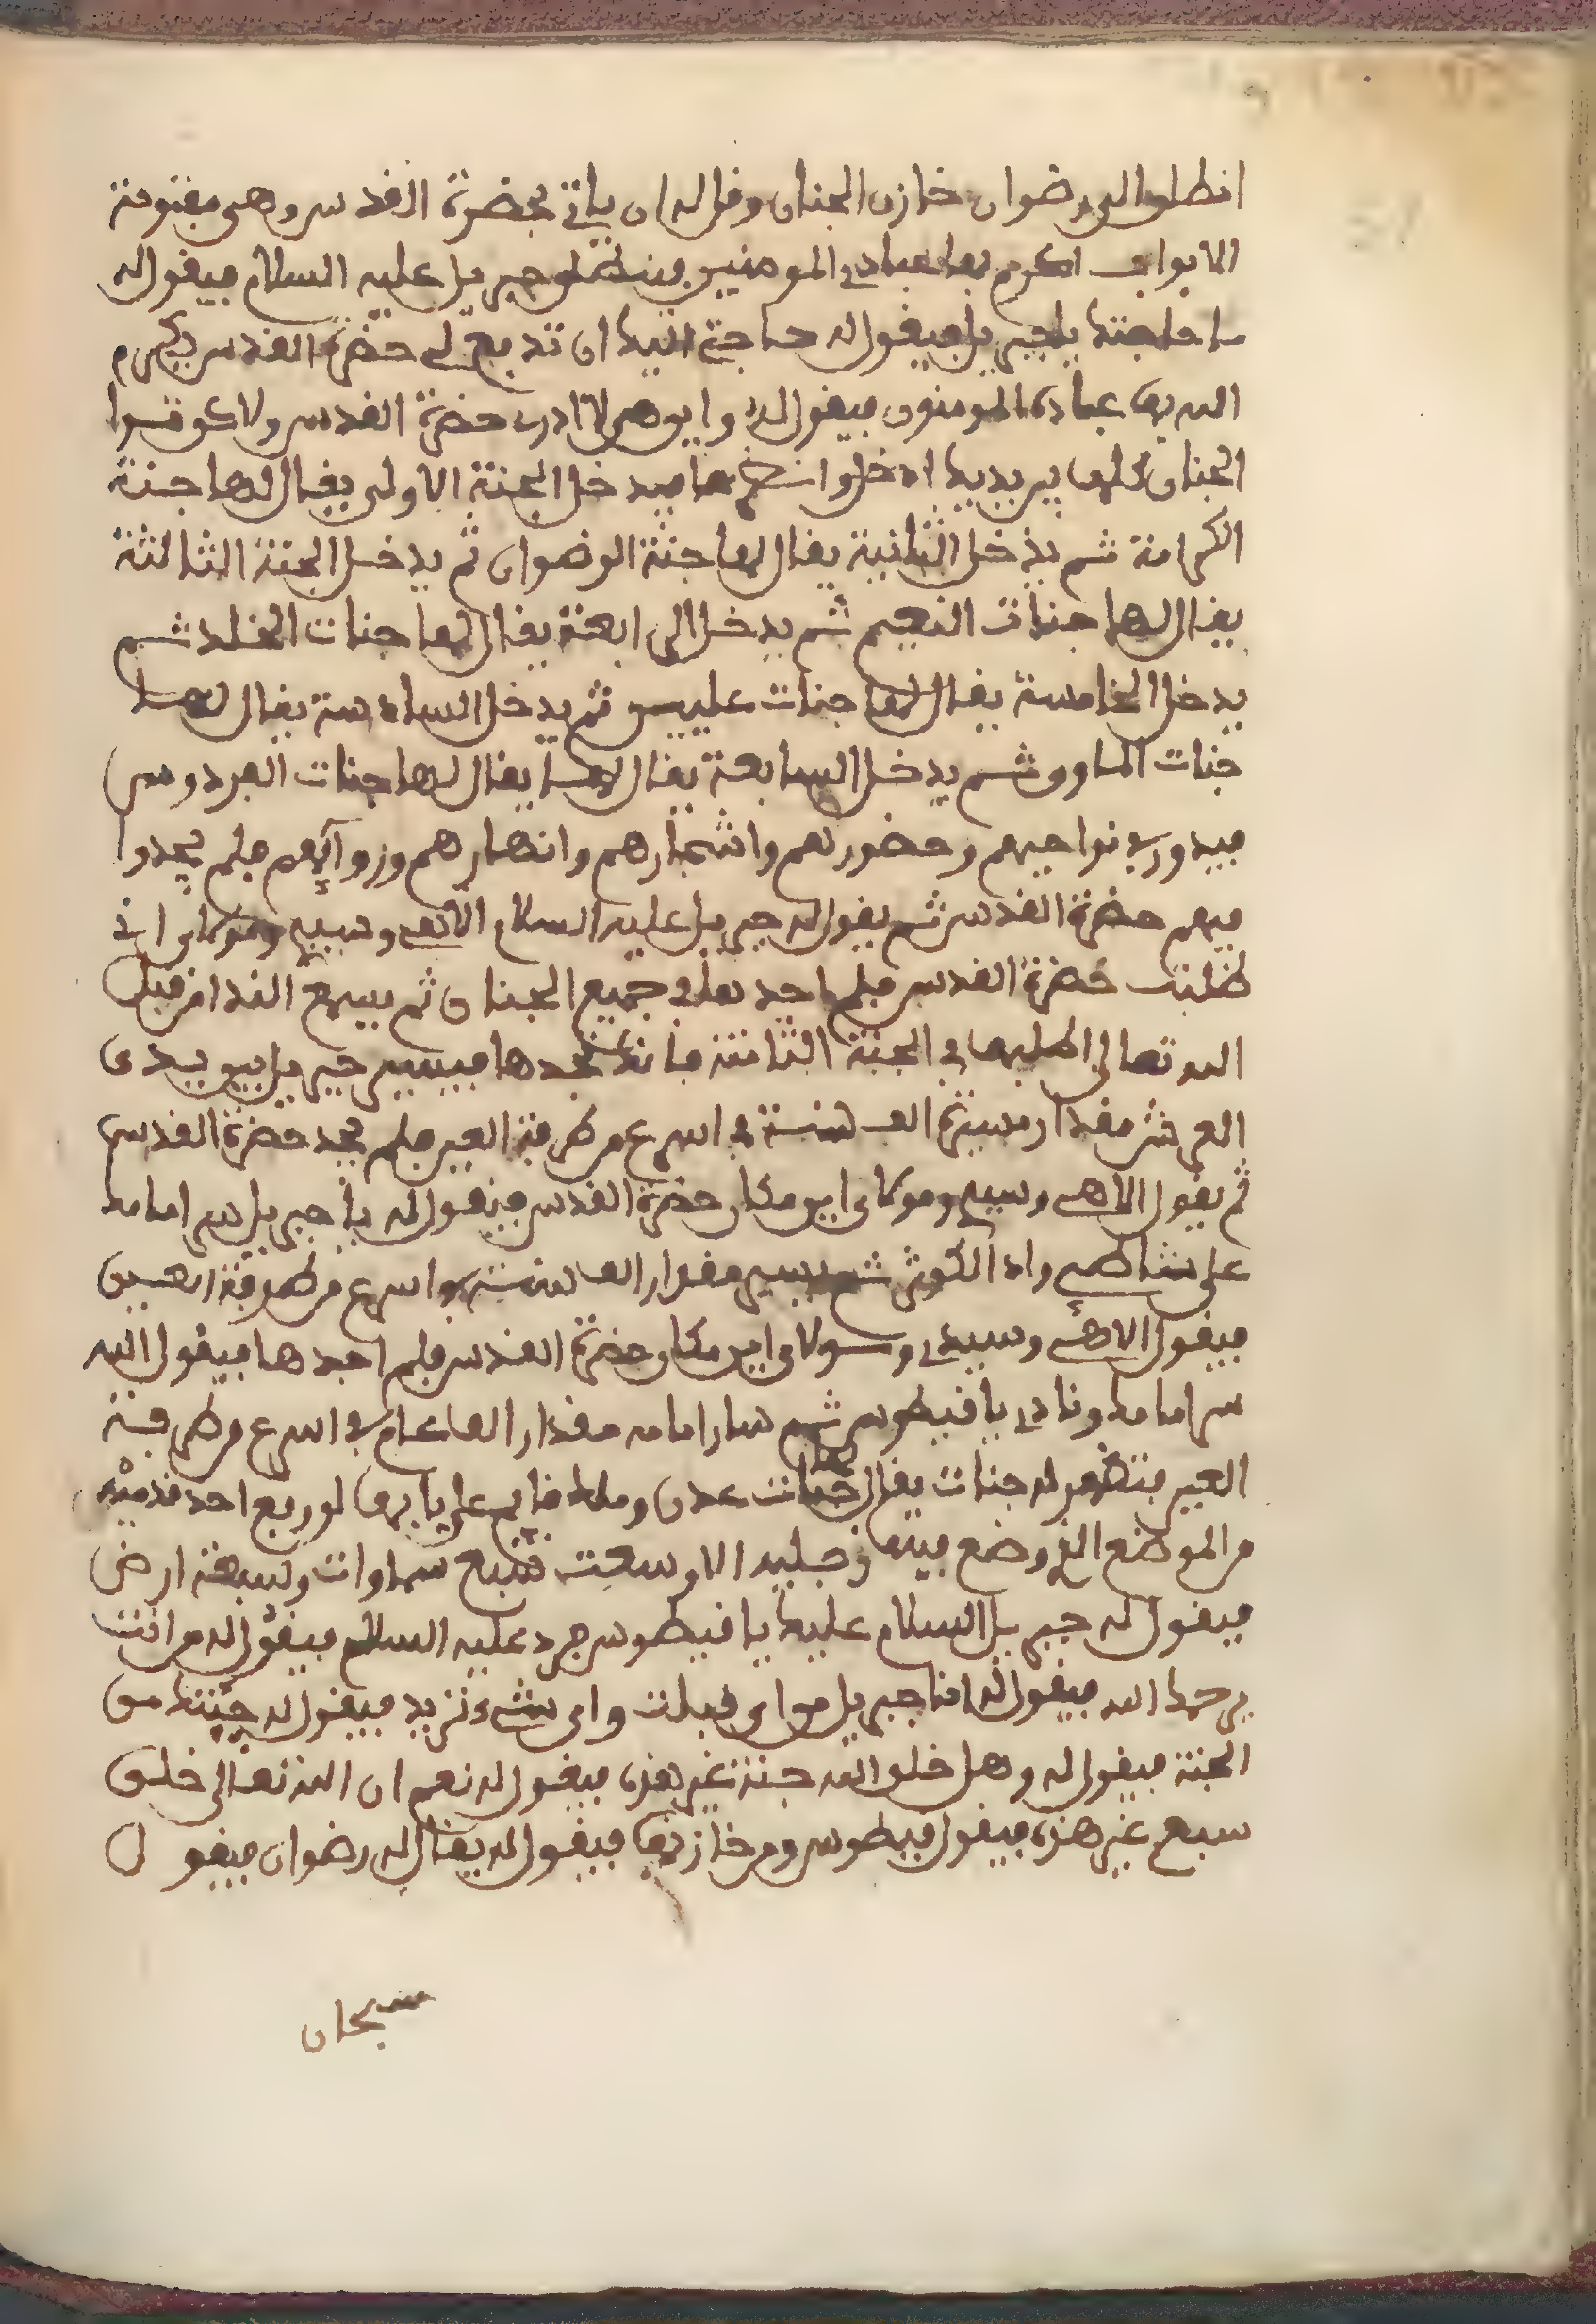 انطلق الى رضوان خازن الجنان وقل له ان ياتي بحضرة القدس وهي مفتوحة
الابواب اكرم بها عبادي المومنين فينطلق جبريل عليه السلام فيقول له
ما حاجتك يا جبريل فيقول له حاجتي اليك ان تدفع لي حضرة القدس ليكرم
الله بها عباده المومنون فيقول له واين هي لا ادري حضرة القدس ولاكن هذا
الجنان كلها بين يديك ادخل وانظرها فيدخل الجنة الاولى يقال لها جنة
الكرامة ثم يدخل الثانية يقال لها جنة الرضوان ثم يدخل الجنة الثالثة
يقال لها جنات النعيم ثم يدخل الى ابعة يقال لها جنات الخلد ثم
يدخل الخامسة يقال لها جنات عليين ثم يدخل السادسة يقال لها
جنات الماوى ثم يدخل السابعة يقال لها يقال لها جنات الفردوس
فيدور في نواحيهم وحضورهم واشجارهم وانهارهم وزواياهم فلم يجدوا
فيهم حضرة القدس ثم يقول له جبريل عليه السلام الاهي وسيدي ومولاي اني
طلبت حضرة القدس فلم اجدها في جميع الجنان ثم يسمع الندا من قبل
الله تعالى اطلبها في الجنة الثامنة فانك تجدها فيسير جبريل بين يدي
العرش مقدار مسيرة الف سنة في اسرع من طرفة العين فلم يجد حضرة القدس
ثم يقول الاهي وسيدي ومولاي اين مكان حضرة القدس فيقول له يا جبريل سر امامك
على شاطي واد الكوثر ثم يسير مقدار الف سنة في اسرع من طرفة العين
فيقول الاهي وسيدي ومولاي اين مكان حضرة القدس فلم اجدها فيقول الله
سر امامك ونادي يا قيطوس ثم سار امامه مقدار الف عام في اسرع من طرفة
العين فتظهر له جنات يقال لها جنات عدن وملك قايم على بابها لو رفع احد قدميه
من الموضع الذي وضع فيه رجليه الا وسعت سبع سماوات وسبعة ارض
فيقول له جبريل السلام عليك يا قيطوس فيرد عليه السلام فيقول له من انت
يرحمك الله فيقول له انا جبريل من اي قبلت واي شيء تريد فيقول له جيتك من
الجنة فيقول له وهل خلق الله جنة غير هذه فيقول له نعم ان الله تعالى خلق
سبع غير هذه فيقول قيطوس ومن خازنها فيقول له يقال له رضوان فيقول
سبحان